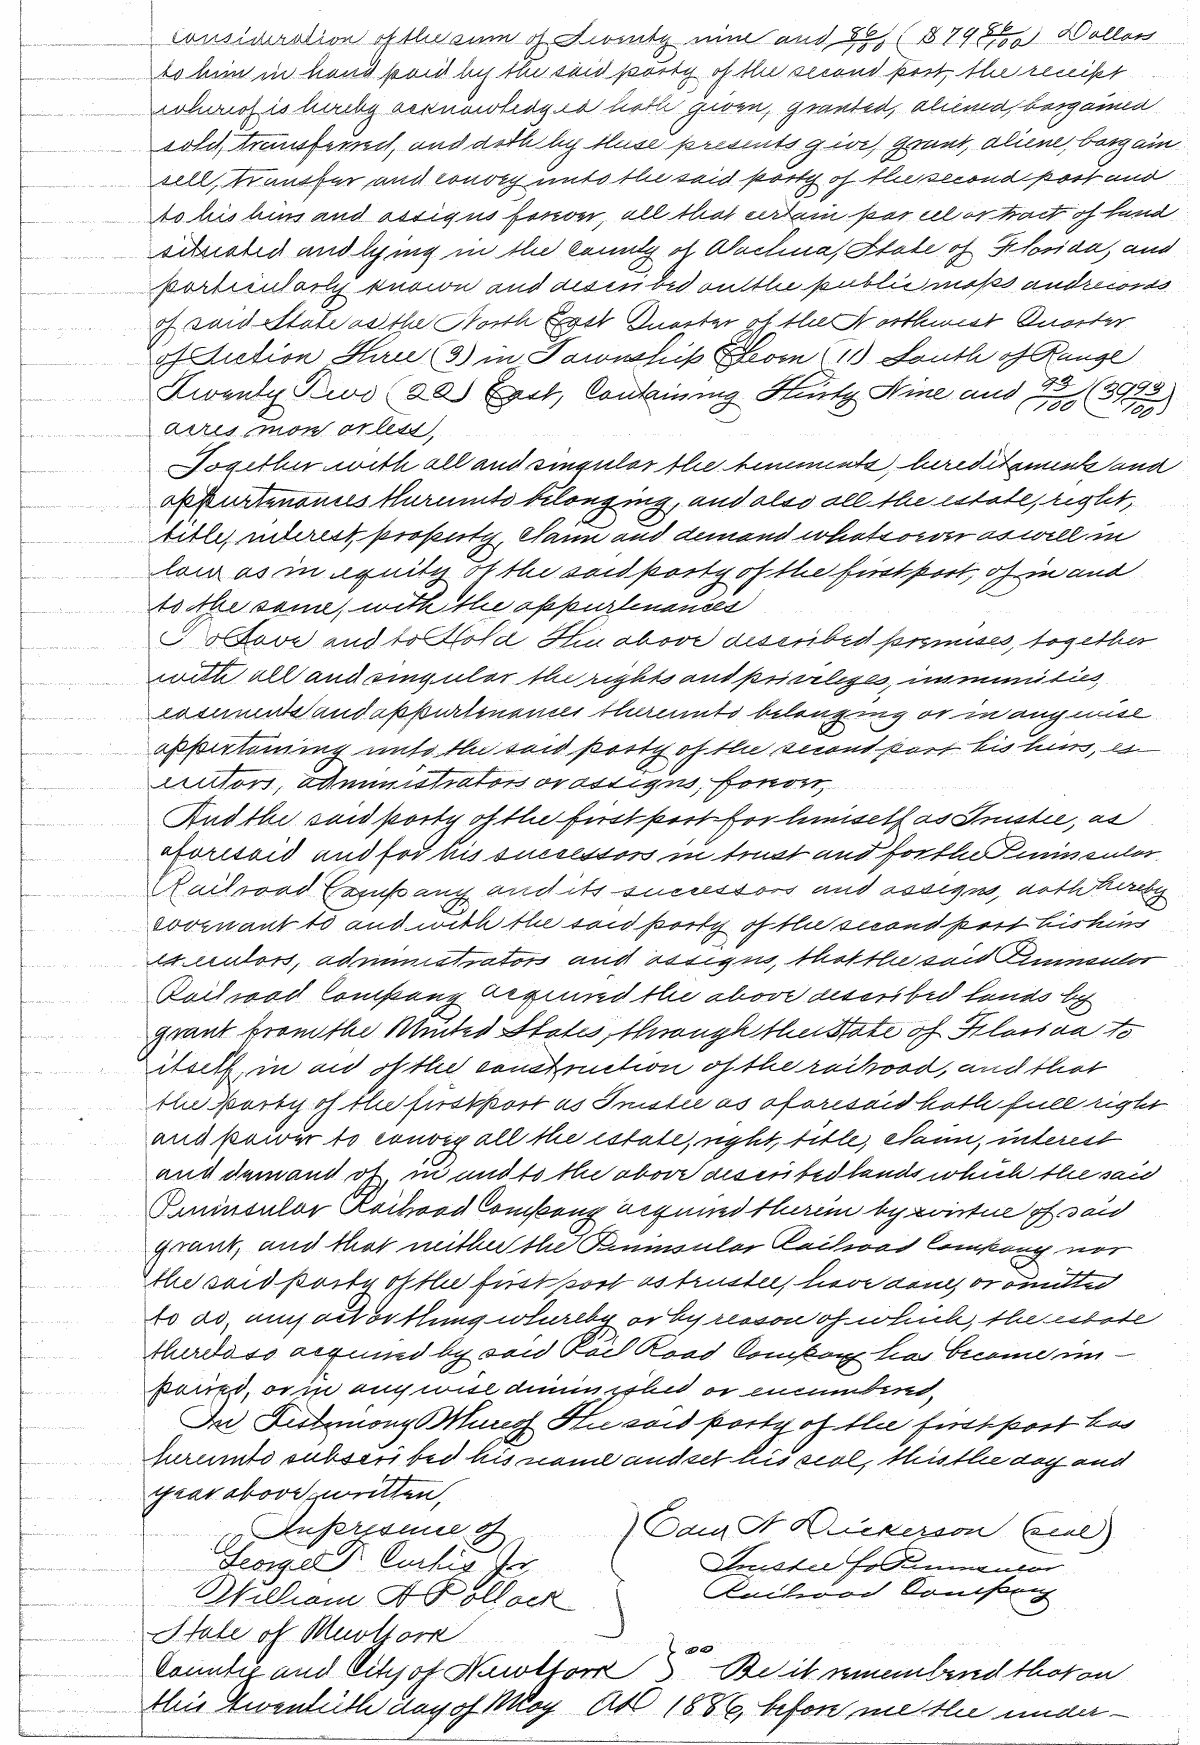 consideration of the sum of Twenty nine and 86/100 ($79 86/100) Dollars
to him in hand paid by the said party of the second part, the receipt
whereof is hereby acknowledged hath given, granted, aliened, bargained
sold, transferred, and doth by these presents give, grant, aliene, bargain
sell, transfer and convey unto the said party of the second part and
to his heirs and assigns forever, all that certain parcel or tract of land
situated and lying in the County of Alachua, State of Florida, and
particularly known and described on the public maps and records
of said State as the North East Quarter of the Northwest Quarter
of Section Three (3) in Township Eleven (11) South of Range
Twenty Two (22) East, Containing Thirty Nine and 93/100 (39 93/100)
acres more or less,
Together with all and singular the tenements, hereditaments and
appurtenances thereunto belonging, and also all the estate, right,
title, interest, property, claim and demand whatsoever as well in
law as in equity of the said party of the first part, of in and
to the same, with the appurtenances
To Have and to Hold The above described premises, together
with all and singular the rights and privileges, immunities,
easements and appurtenances thereunto belonging or in any wise
appertaining unto the said party of the second part his heirs, ex
ecutors, administrators or assigns, forever,
And the said party of the first part for himself as Trustee, as
aforesaid and for his successors in trust and for the Peninsular
Railroad Company and its successors and assigns, doth hereby
covenant to and with the said party of the second part his heirs
executors, administrators and assigns, that the said Peninsular
Railroad Company acquired the above described lands by
grant from the United States, through the State of Florida to
itself, in aid of the construction of the railroad, and that
the party of the first part as Trustee as aforesaid hath full right
and power to convey all the estate, right, title, claim, interest
and demand of, in and to the above described lands which the said
Peninsular Railroad Company acquired therein by virtue of said
grant, and that neither the Peninsular Railroad Company nor
the said party of the first part as trustee, have done, or omitted
to do, any act or thing whereby or by reason of which, the estate
thereto so acquired by said Rail Road Company has become im-
paired, or in any wise diminished or encumbered,
In Testimony Whereof The said party of the first part has
hereunto subscribed his name and set his seal, this the day and
year above written,
In presence of } Edw N Dickerson (seal)
George T Curtis Jr Trustee for Peninsular
William A Pollock Railroad Company
State of New York
County and City of New York } ss Be it remembered that on
this twentieth day of May AD 1886, before me the under-